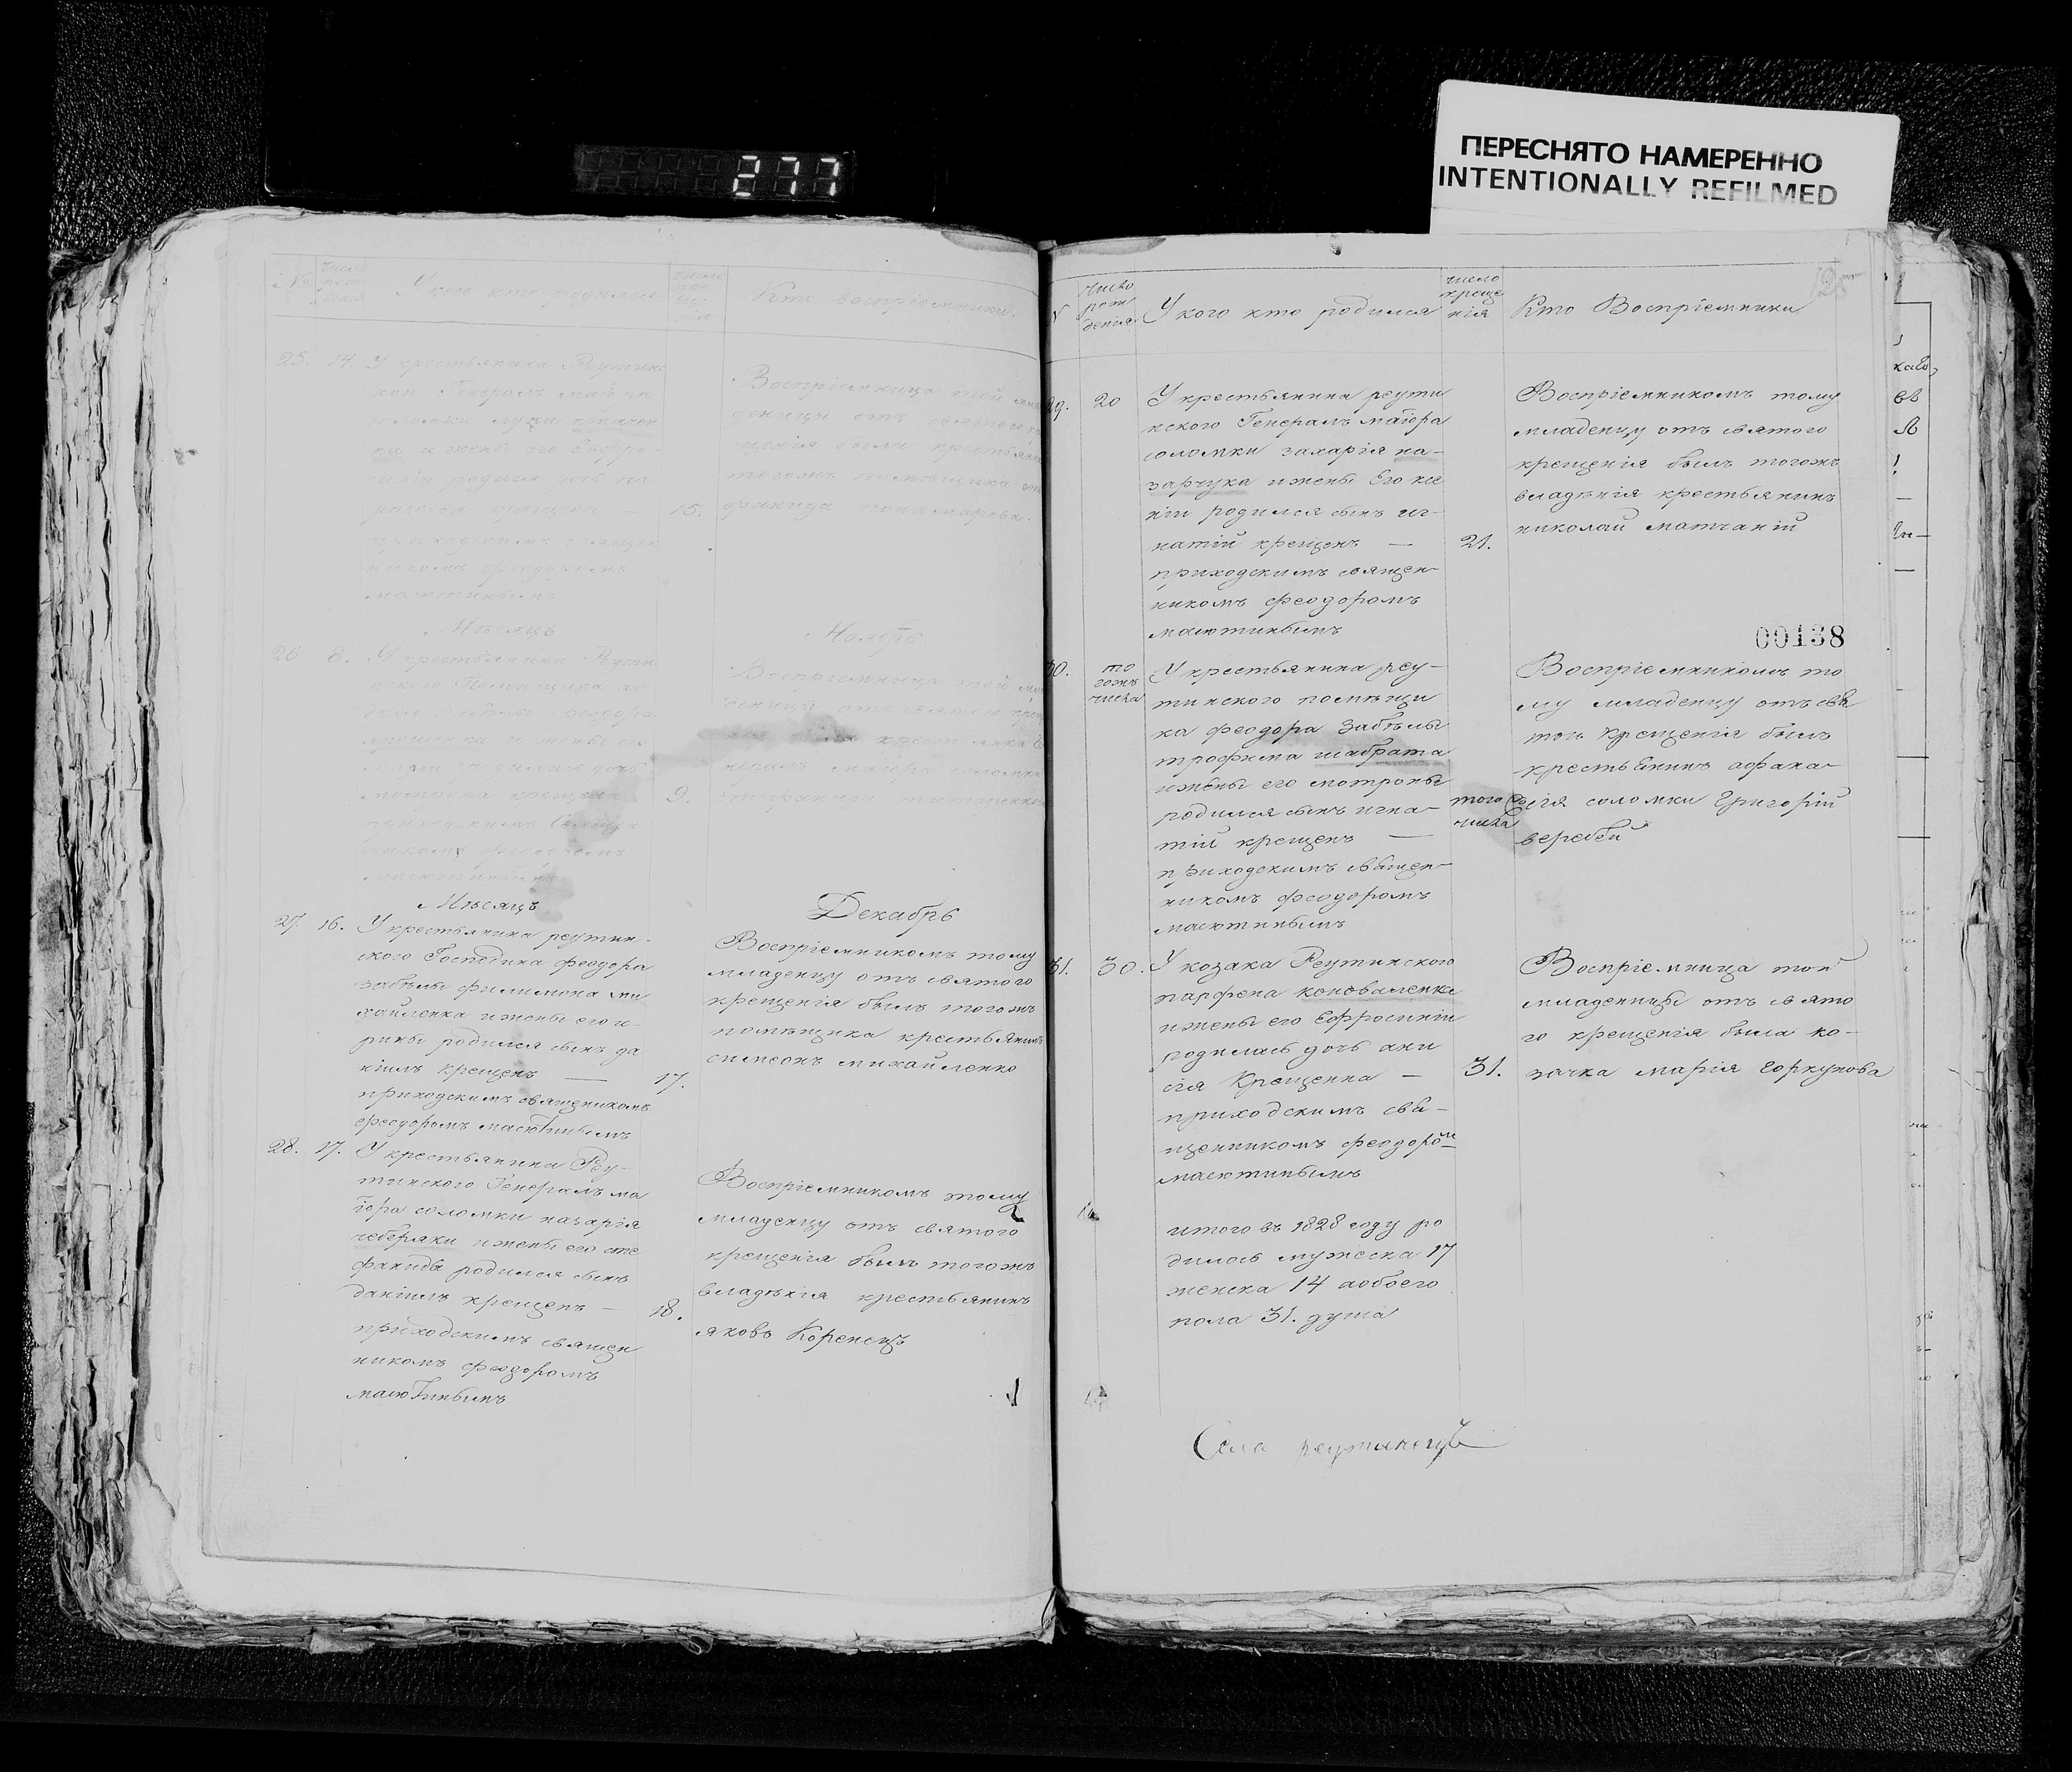 277
ПЕРЕСНЯТО НАМЕРЕННО
INTENTIONALLY REFILMED
№
У кого кто родился
Кто воспріемники
25. 14. У крестьянина Реутин
ского Генералъ маіора
соломки
ка и жены его Евфро-
синіи родися дочь па-
раскева крещена —
приходскимъ священ
никомъ феодоромъ
масютинымъ
15.
Воспріемница той мла
деницы отъ святого кре
щенія были крестьянка
тогожъ помѣщика
Мѣсяцъ
Ноябрь
26 8. У крестьянина Реути
нского Помѣщика
Забѣлы феодора
и жены его
родилась дочь
мотрона крещена
приходскимъ Священ
никомъ феодоромъ
масютинымъ
9.
Воспріемница той мла
деницы отъ святого крещ
крестьянка Ге
нералъ маіора соломки
Мѣсяцъ
Декабрь
27. 16. У крестьянина реутин-
ского Господина феодора
забѣлы филимона ми
хайленка и жены его и-
рины родился сынъ да
ніилъ крещенъ —
приходскимъ священикомъ
феодоромъ масютинымъ
17.
Воспріемникомъ тому
младенцу отъ святого
крещенія былъ тогожъ
помѣщика крестьянинъ
симеонъ михайленко
28. 17. У крестьянина Реу-
тинского Генералъ ма
іора соломки назарія
чеберяки и жены его сте
фаниды родился сынъ
даніилъ крещенъ —
приходскимъ священ
никомъ феодоромъ
масютинымъ
18.
Воспріемникомъ тому
младенцу отъ святого
крещенія былъ тогожъ
владѣнія крестьянинъ
яковъ Коренецъ
125
N
число
рож
денія
У кого кто родился
число
креще
нія
Кто Воспріемники
29. 20 У крестьянина реути
нского Генералъ маіора
соломки захарія на-
зарчука и жены Его ксе
ніи родился сынъ иг-
натій крещенъ —
приходскимъ священ-
никомъ феодоромъ
масютинымъ
21.
Воспріемникомъ тому
младенцу отъ святого
крещенія былъ тогожъ
владѣнія крестьянинъ
николай матчаній
00138
30. то
гожъ
числа
У крестьянина реу-
тинского помѣщи
ка феодора Забѣлы
трофима шабрата
и жены его мотроны
родился сынъ игна-
тій крещенъ —
приходскимъ священ-
никомъ феодоромъ
масютинымъ
того
числа
Воспріемникомъ то
му младенцу отъ свя
того крещенія былъ
крестьянинъ афана-
сія соломки Григорій
веребей
31. 30. У козака Реутинского
парфена коноваленка
и жены его Ефросиніи
родилась дочь ани
сія Крещенна —
приходскимъ свя-
щенникомъ феодоромъ
масютинымъ
31.
Воспріемница той
младеницы отъ свято
го крещенія была ко-
зачка марія Горкунова
итого въ 1828 году ро
дилось мужеска 17
женска 14 аобоего
пола 31. душа
Села реутинецъ